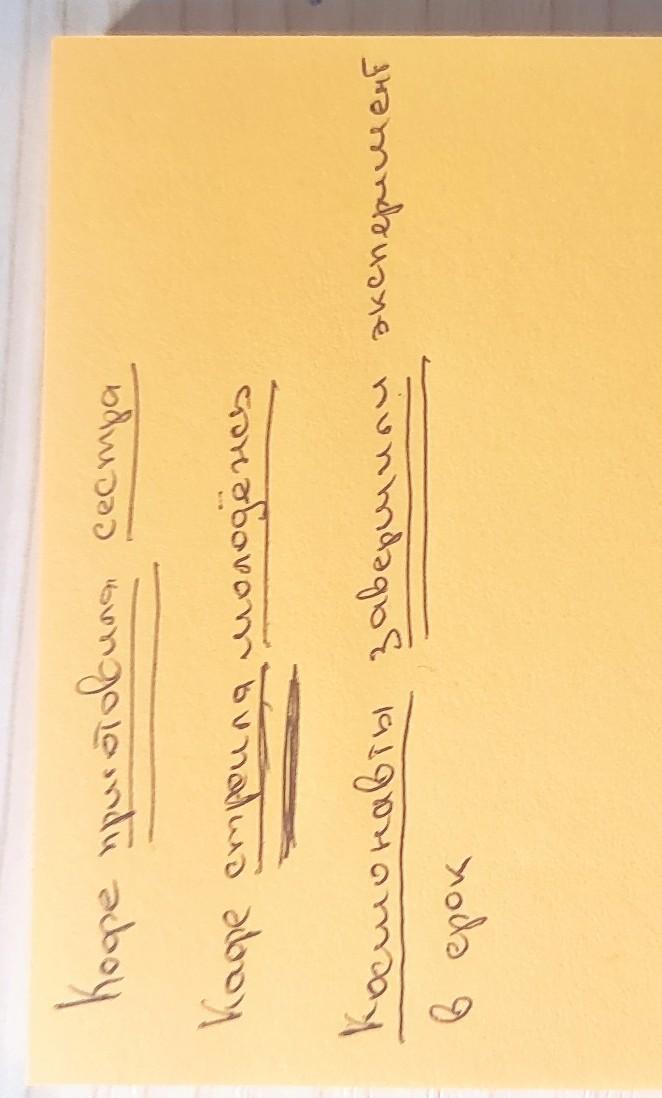 Кофе приготовила сестра
Кафе строила молодёжь
Космонавты завершили эксперимент
в срок